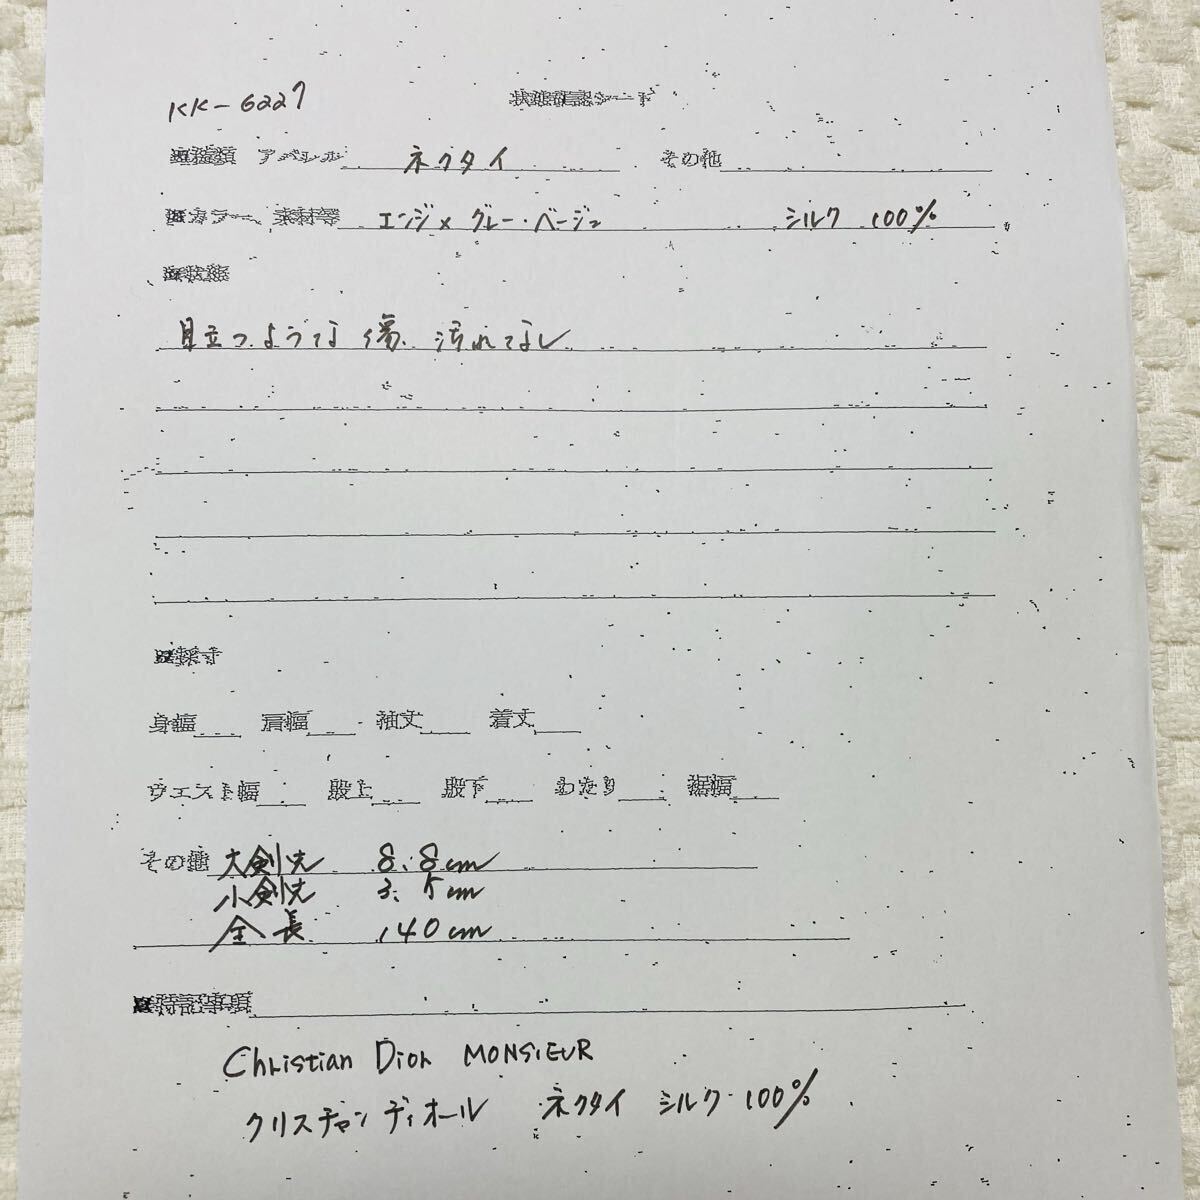 KK-6227
状態確認シート
■種類 アパレル ネクタイ その他
■カラー、素材等 エンジ×グレー・ベージュ シルク 100%
■状態
目立つような傷、汚れてなし
■採寸
身幅 肩幅 袖丈 着丈
ウエスト幅 股上 股下 わたり 裾幅
その他 大剣先 8.8cm
小剣先 3.5cm
全長 140cm
■特記事項
Christian Dior MONSIEUR
クリスチャンディオール ネクタイ シルク 100%